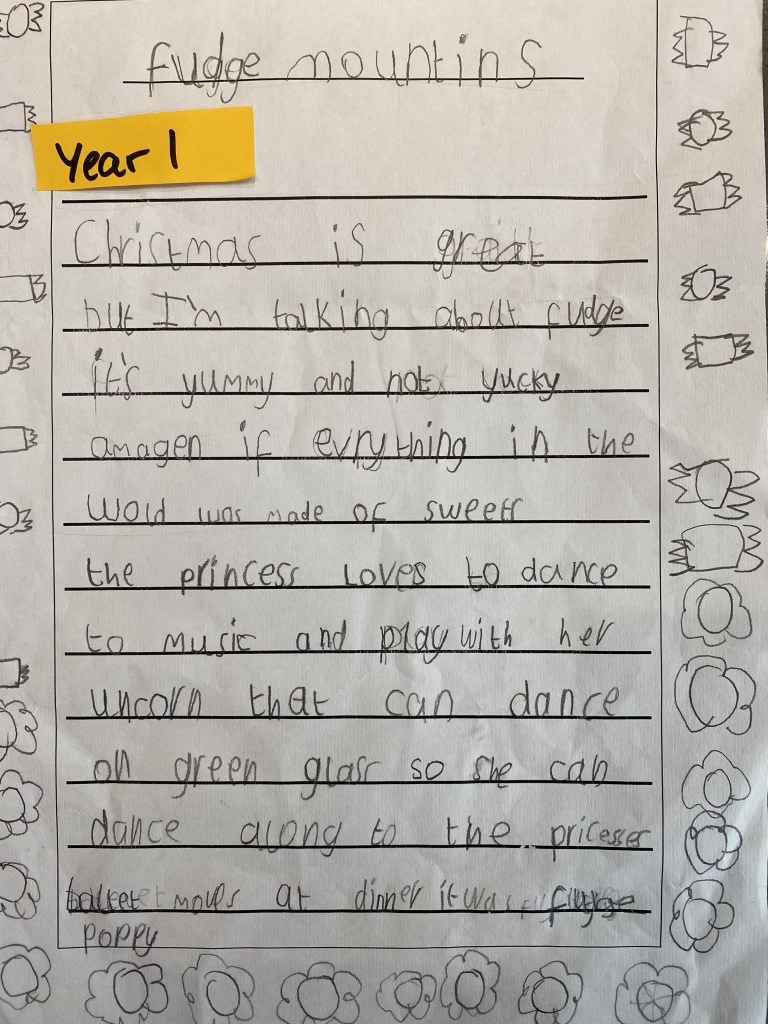 fudge mountins
Year 1
Christmas is great
but I'm talking about fudge
it's yummy and not yucky
amagen if evrything in the
wold was made of sweets
the princess loves to dance
to music and play with her
uncorn that can dance
on green glass so she can
dance along to the pricesses
ballet moves at dinner it was fudge
poppy